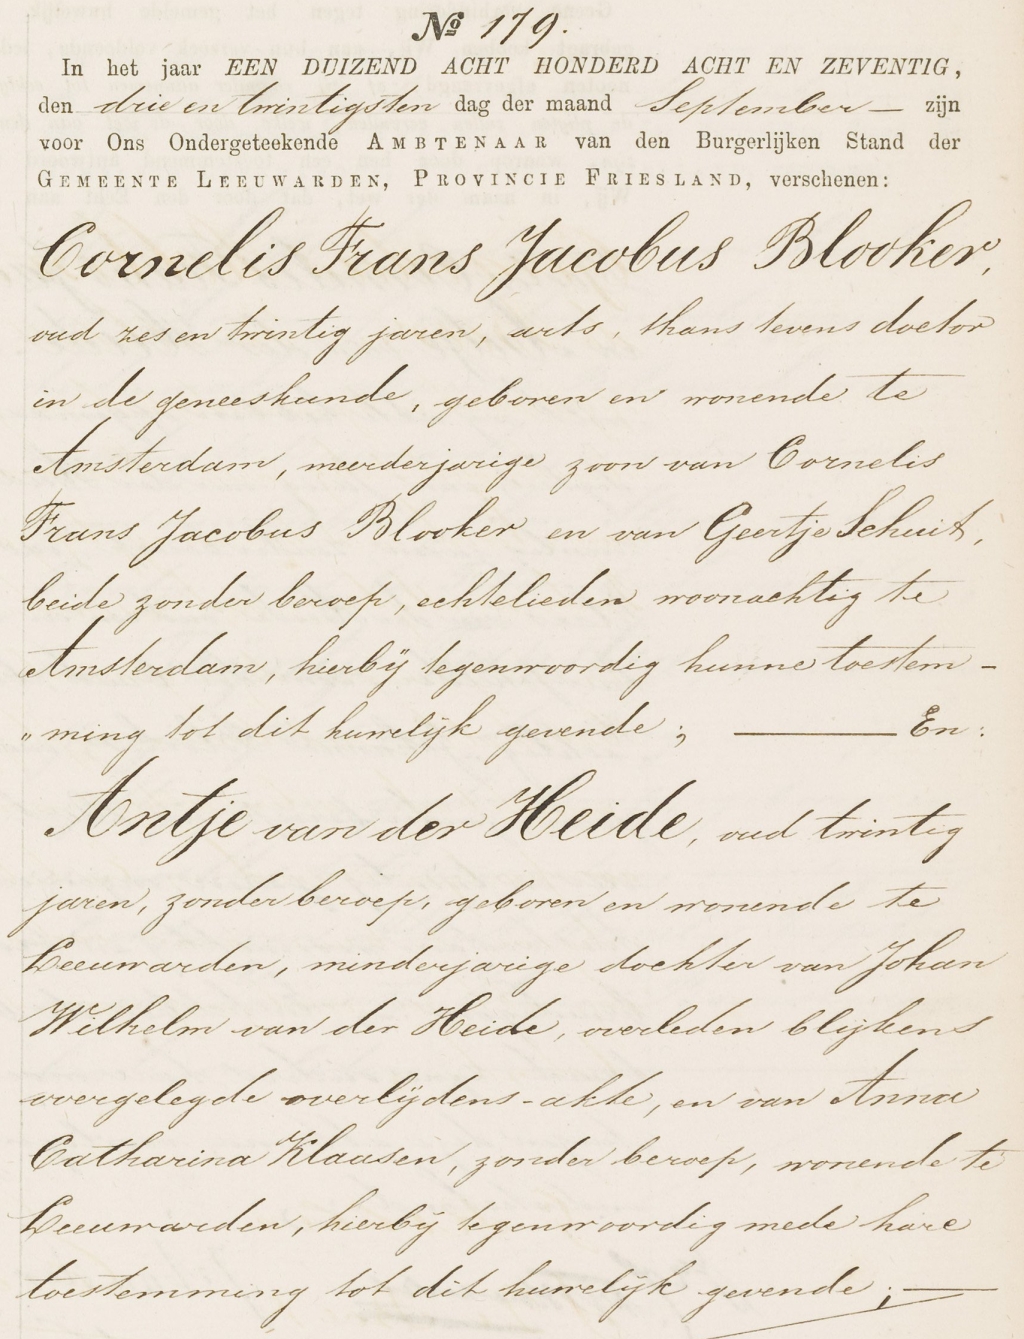 № 179.
In het jaar EEN DUIZEND ACHT HONDERD ACHT EN ZEVENTIG,
den drie en twintigsten dag der maand September — zijn
voor Ons Ondergeteekende AMBTENAAR van den Burgerlijken Stand der
GEMEENTE LEEUWARDEN, PROVINCIE FRIESLAND, verschenen:
Cornelis Frans Jacobus Blooker,
oud zes en twintig jaren, arts, thans tevens doctor
in de geneeskunde, geboren en wonende te
Amsterdam, meerderjarige zoon van Cornelis
Frans Jacobus Blooker en van Geertje Schuit,
beide zonder beroep, echtelieden woonachtig te
Amsterdam, hierbij tegenwoordig hunne toestem-
„ming tot dit huwelijk gevende; — En:
Antje van der Heide, oud twintig
jaren, zonder beroep, geboren en wonende te
Leeuwarden, minderjarige dochter van Johan
Wilhelm van der Heide, overleden blijkens
overgelegde overlijdens-akte, en van Anna
Catharina Klaasen, zonder beroep, wonende te
Leeuwarden, hierbij tegenwoordig mede hare
toestemming tot dit huwelijk gevende; —